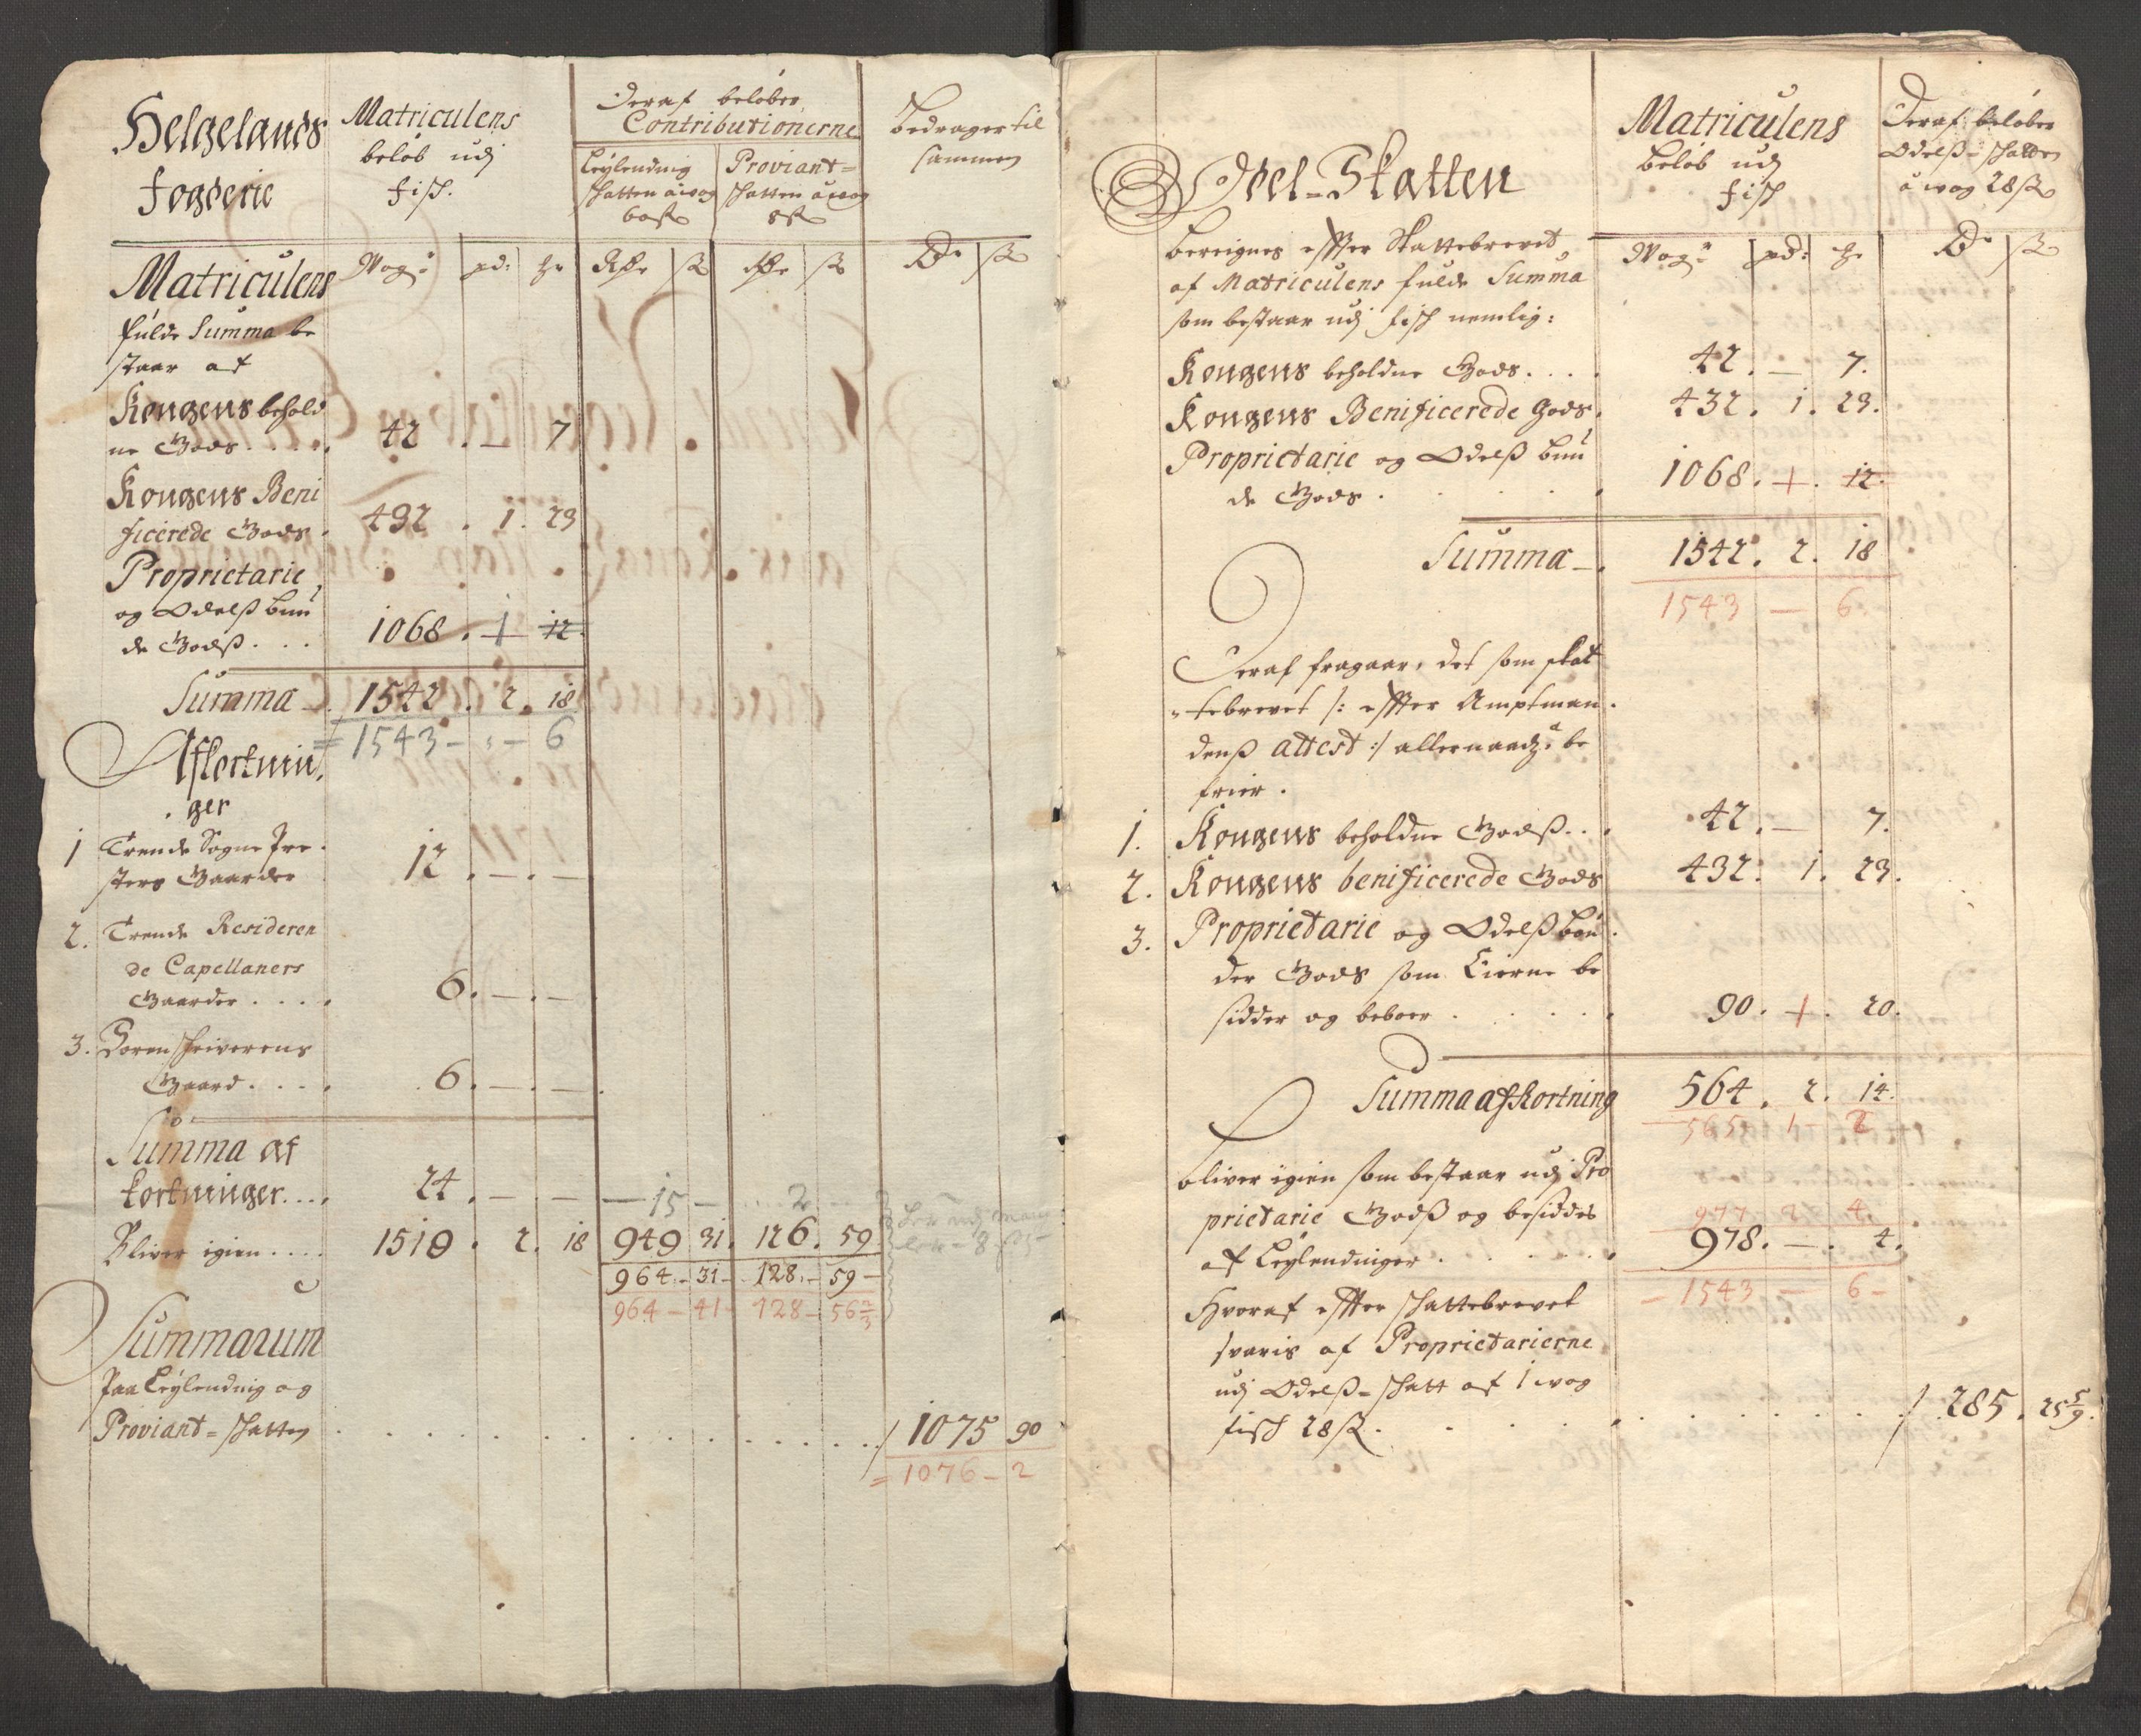 Helgelands
Fogderie
Matriculens
beløb udj
fisk.
Deraf beløber
Contributionerne
Leylending
skatten à wog
60 sk
Proviant=
skatten à wog
8 sk
Bedrager til
sammen
Wog: pd: D ß
Matriculens
fulde Summa be
staar af
Kongens behold
ne Gods . . . . 42 . — 7
Kongens Beni
ficerede Gods . 432 . 1. 23
Proprietarie
og Odelß bun
de Godß . . . 1068 . 1 12
Summa — 1542 . 2. 18
= 1543 - - 6
Afkortnin,
ger
1 Trende Sogne Pre-
sters Gaarder 12 . — . —
2. Trende Resideren
de Capellaners
Gaarder . . . . 6. — . —
3. Sorenskriverens
Gaard . . . . 6. — . —
Summa af
kortninger . . . 24 . — . — — 15 — 2
Bliver igien . . . . 1518 . 2. 18 949 31. 126. 59
964 - 31 - 128 - 59 -
964 - 41 - 128 - 56 2/3
Summarum
paa Leylending og
Proviant = skatten . . . . . . . . . . / 1075 90
= 1076 - 2
Odel=Skatten
Matriculens
beløb udj
fisk
Deraf beløber
Odelß=skatten
à wog 28 ß
Wog: pd: D ß
beregnes effter Skattebrevet
af Matriculens fulde Summa
som bestaar udj fisk nemlig:
Kongens beholdne Gods . . . . 42 . — 7.
Kongens Benificerede Gods . 432 . 1. 23.
Proprietarie og Odelß bun
de Gods . . . . 1068. 1. 12.
Summa — . 1542 . 2. 18
1543 — 6.
Deraf fragaar, det som skat
tebrevet /: effter Amptman
denß attest :/ allernaadg: be
frier .
1. Kongens beholdne Godß . . . 42 . — 7.
2. Kongens benificerede Gods 432. 1. 23.
3. Proprietarie og Odelß bøn
der Gods som Eierne be
sidder og beboer . . . . . 90. 1. 20.
Summa afkortning 564 . 2. 14.
565 - 1 - 2
bliver igien som bestaar udj Pro
prietarie Godß og besiddes 977 2 4
af Leylendinger . . . . . 978. — . 4.
— 1543 — 6 -
Hvoraf effter skattebrevet
svaris af Proprietarierne
udj Odelß=skatt af 1 wog
fisk 28 ß . . . . . . . . . / 285 . 25 5/9.